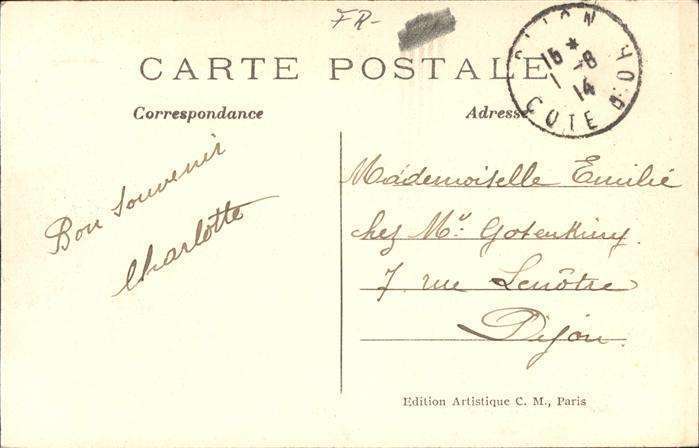 FR-
CARTE POSTALE
DIJON
15 *
1 -8
14
COTE D'OR
Correspondance
Adresse
Bon souvenir
Charlotte
Mademoiselle Emilie
chez Mr
7 rue Lenôtre
Dijon.
Edition Artistique C. M., Paris